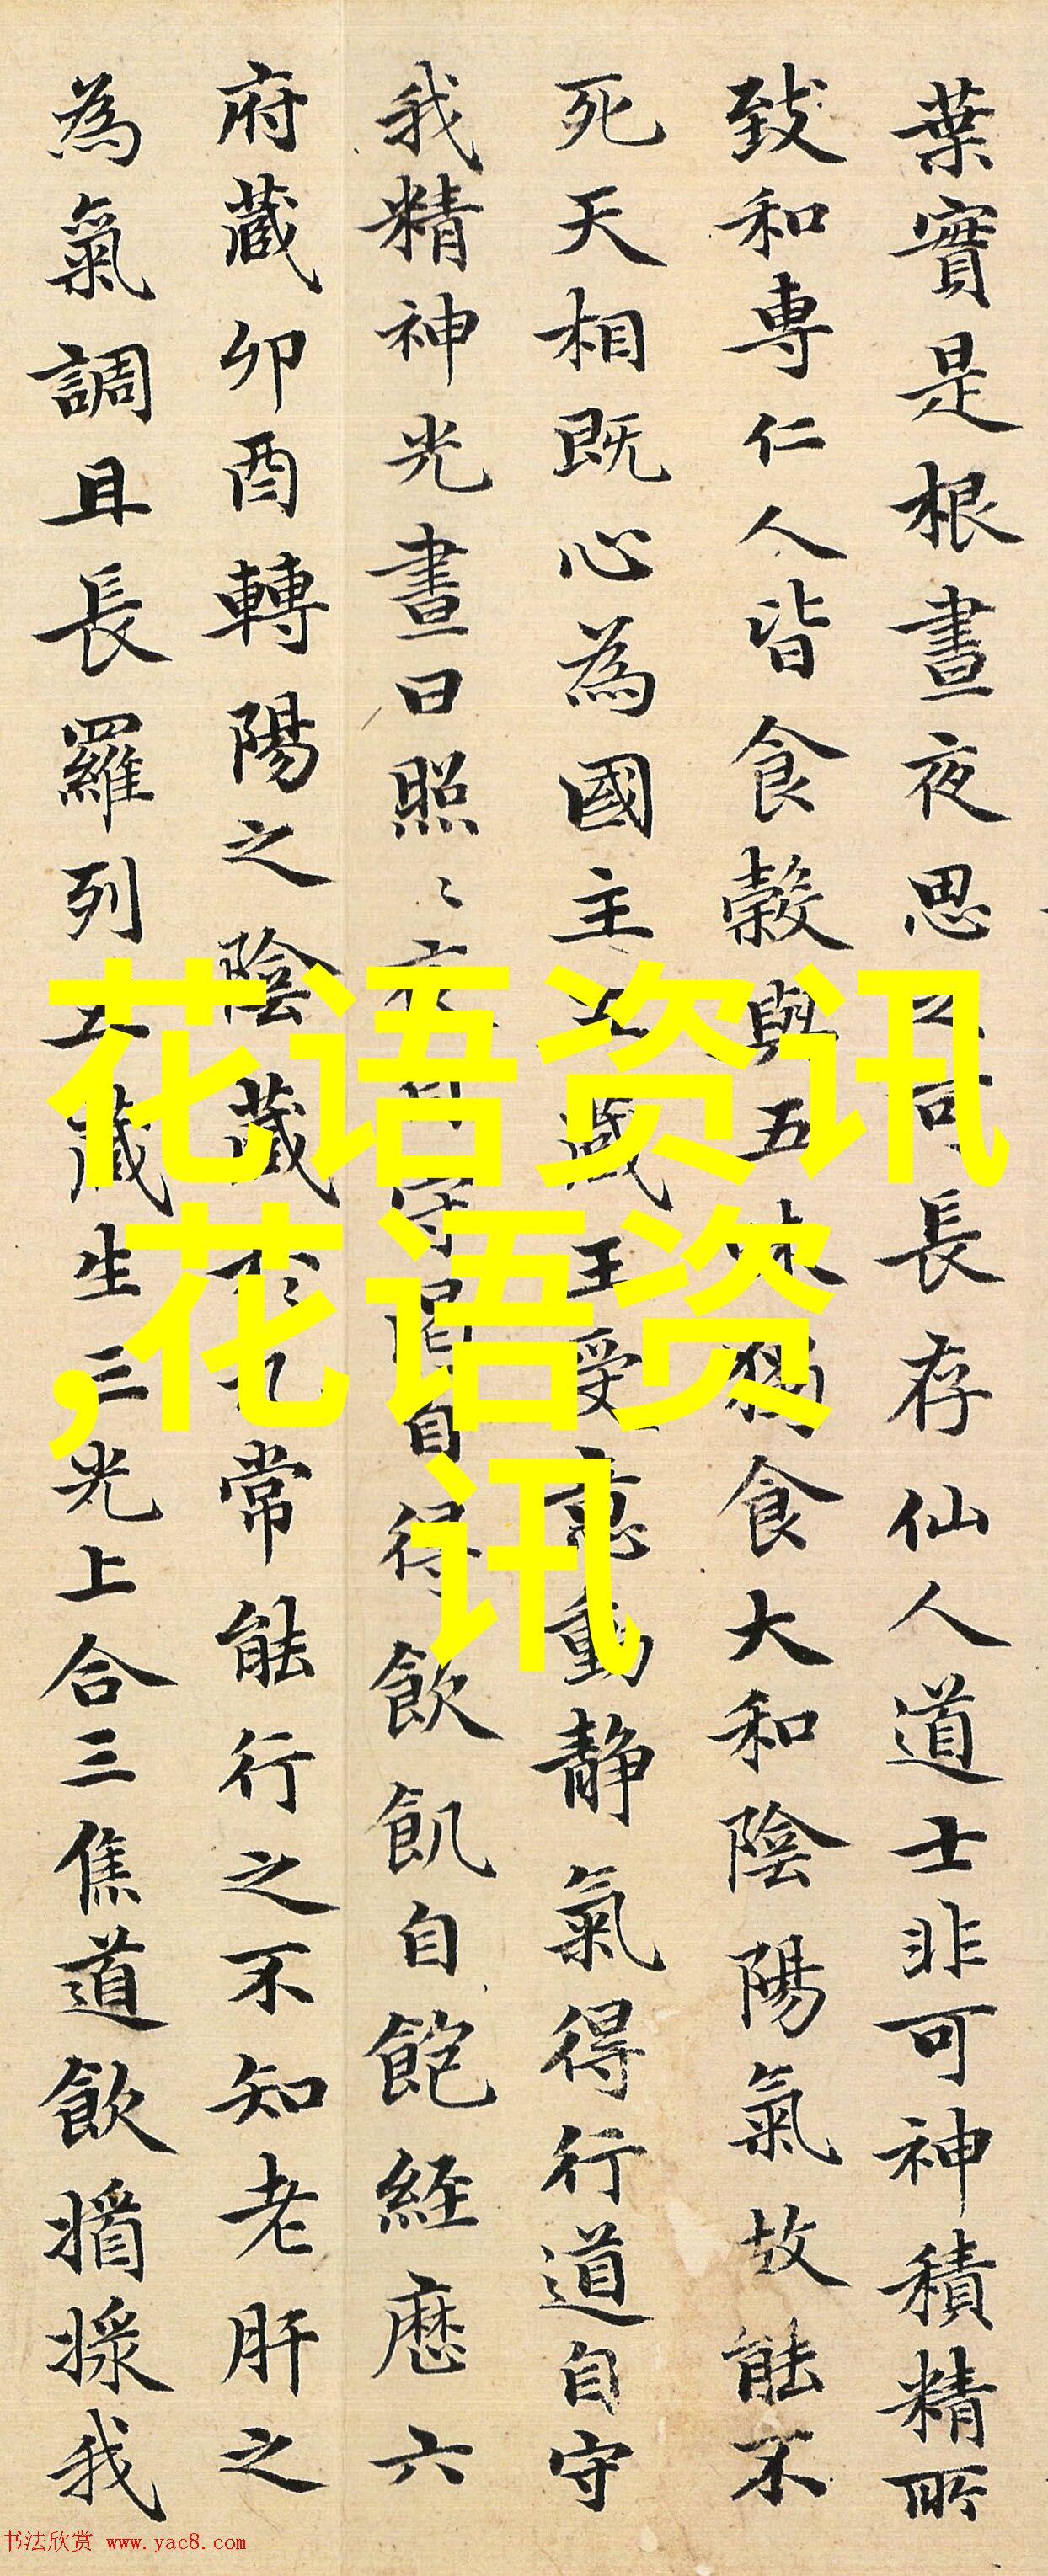 葉實是根晝夜思之可長存仙人道士非可神積精所
致和專仁人皆食穀與五味獨食大和陰陽氣故能不
死天相既心為國主五藏王受意動靜氣得行道自守
我精神光晝日照〻夜自守渴自得飲飢自飽經歷六
府藏卯酉轉陽之陰藏於九常能行之不知老肝之
為氣調且長羅列五藏生三光上合三焦道飲揟採我
花语资讯
,花语资
讯
书法欣赏 www.yac8.com